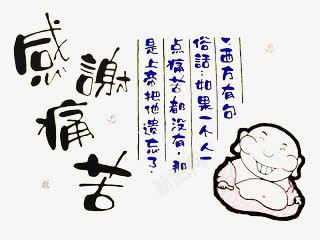 感謝
痛苦
西方有句
俗話：如果一个人一
点痛苦都没有，那
是上帝把他遗忘了。